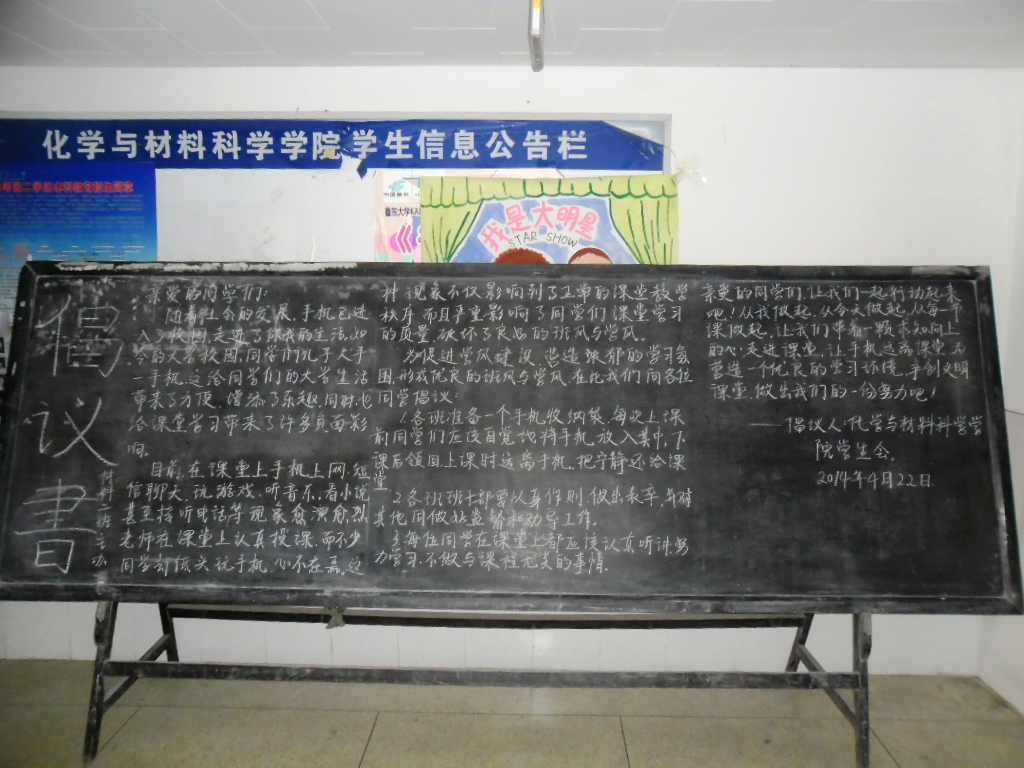 化学与材料科学学院 学生信息公告栏
中国邮政
鲁东大学
我是大明星
STAR SHOW
倡议書
材料二班 宣
亲爱的同学们:
随着社会的发展,手机已进
入了校园,走进了你我的生活,如
今的大学校园,同学们几乎人手
一手机,这给同学们的大学生活
带来了方便,增添了乐趣,同时,也
给课堂学习带来了许多负面影
响。
目前,在课堂上手机上网,短
信聊天、玩游戏、听音乐、看小说
甚至接听电话等现象愈演愈烈,
老师在课堂上认真授课,而不少
同学却低头玩手机,心不在焉。这
种现象不仅影响到了正常的课堂教学
秩序,而且严重影响了同学们课堂学习
的质量,破坏了良好的班风与学风。
为促进学风建设,营造浓郁的学习氛
围,形成优良的班风与学风,在此我们向各位
同学倡议:
1.各班准备一个手机收纳袋,每次上课
前同学们应该自觉地将手机放入其中,下
课后领回,上课时远离手机,把宁静还给课
堂
2.各班班干部要以身作则,做出表率,并对
其他同做好监督和劝导工作。
3.每位同学在课堂上都应该认真听讲,努
力学习,不做与课程无关的事情。
亲爱的同学们,让我们一起行动起来
吧!从我做起,从今天做起,从每一节
课做起,让我们带着一颗求知向上
的心,走进课堂,让手机远离课堂,
营造一个优良的学习环境,争创文明
课堂,做出我们的一份努力吧!
——倡议人:化学与材料科学学
院学生会。
2014年4月22日